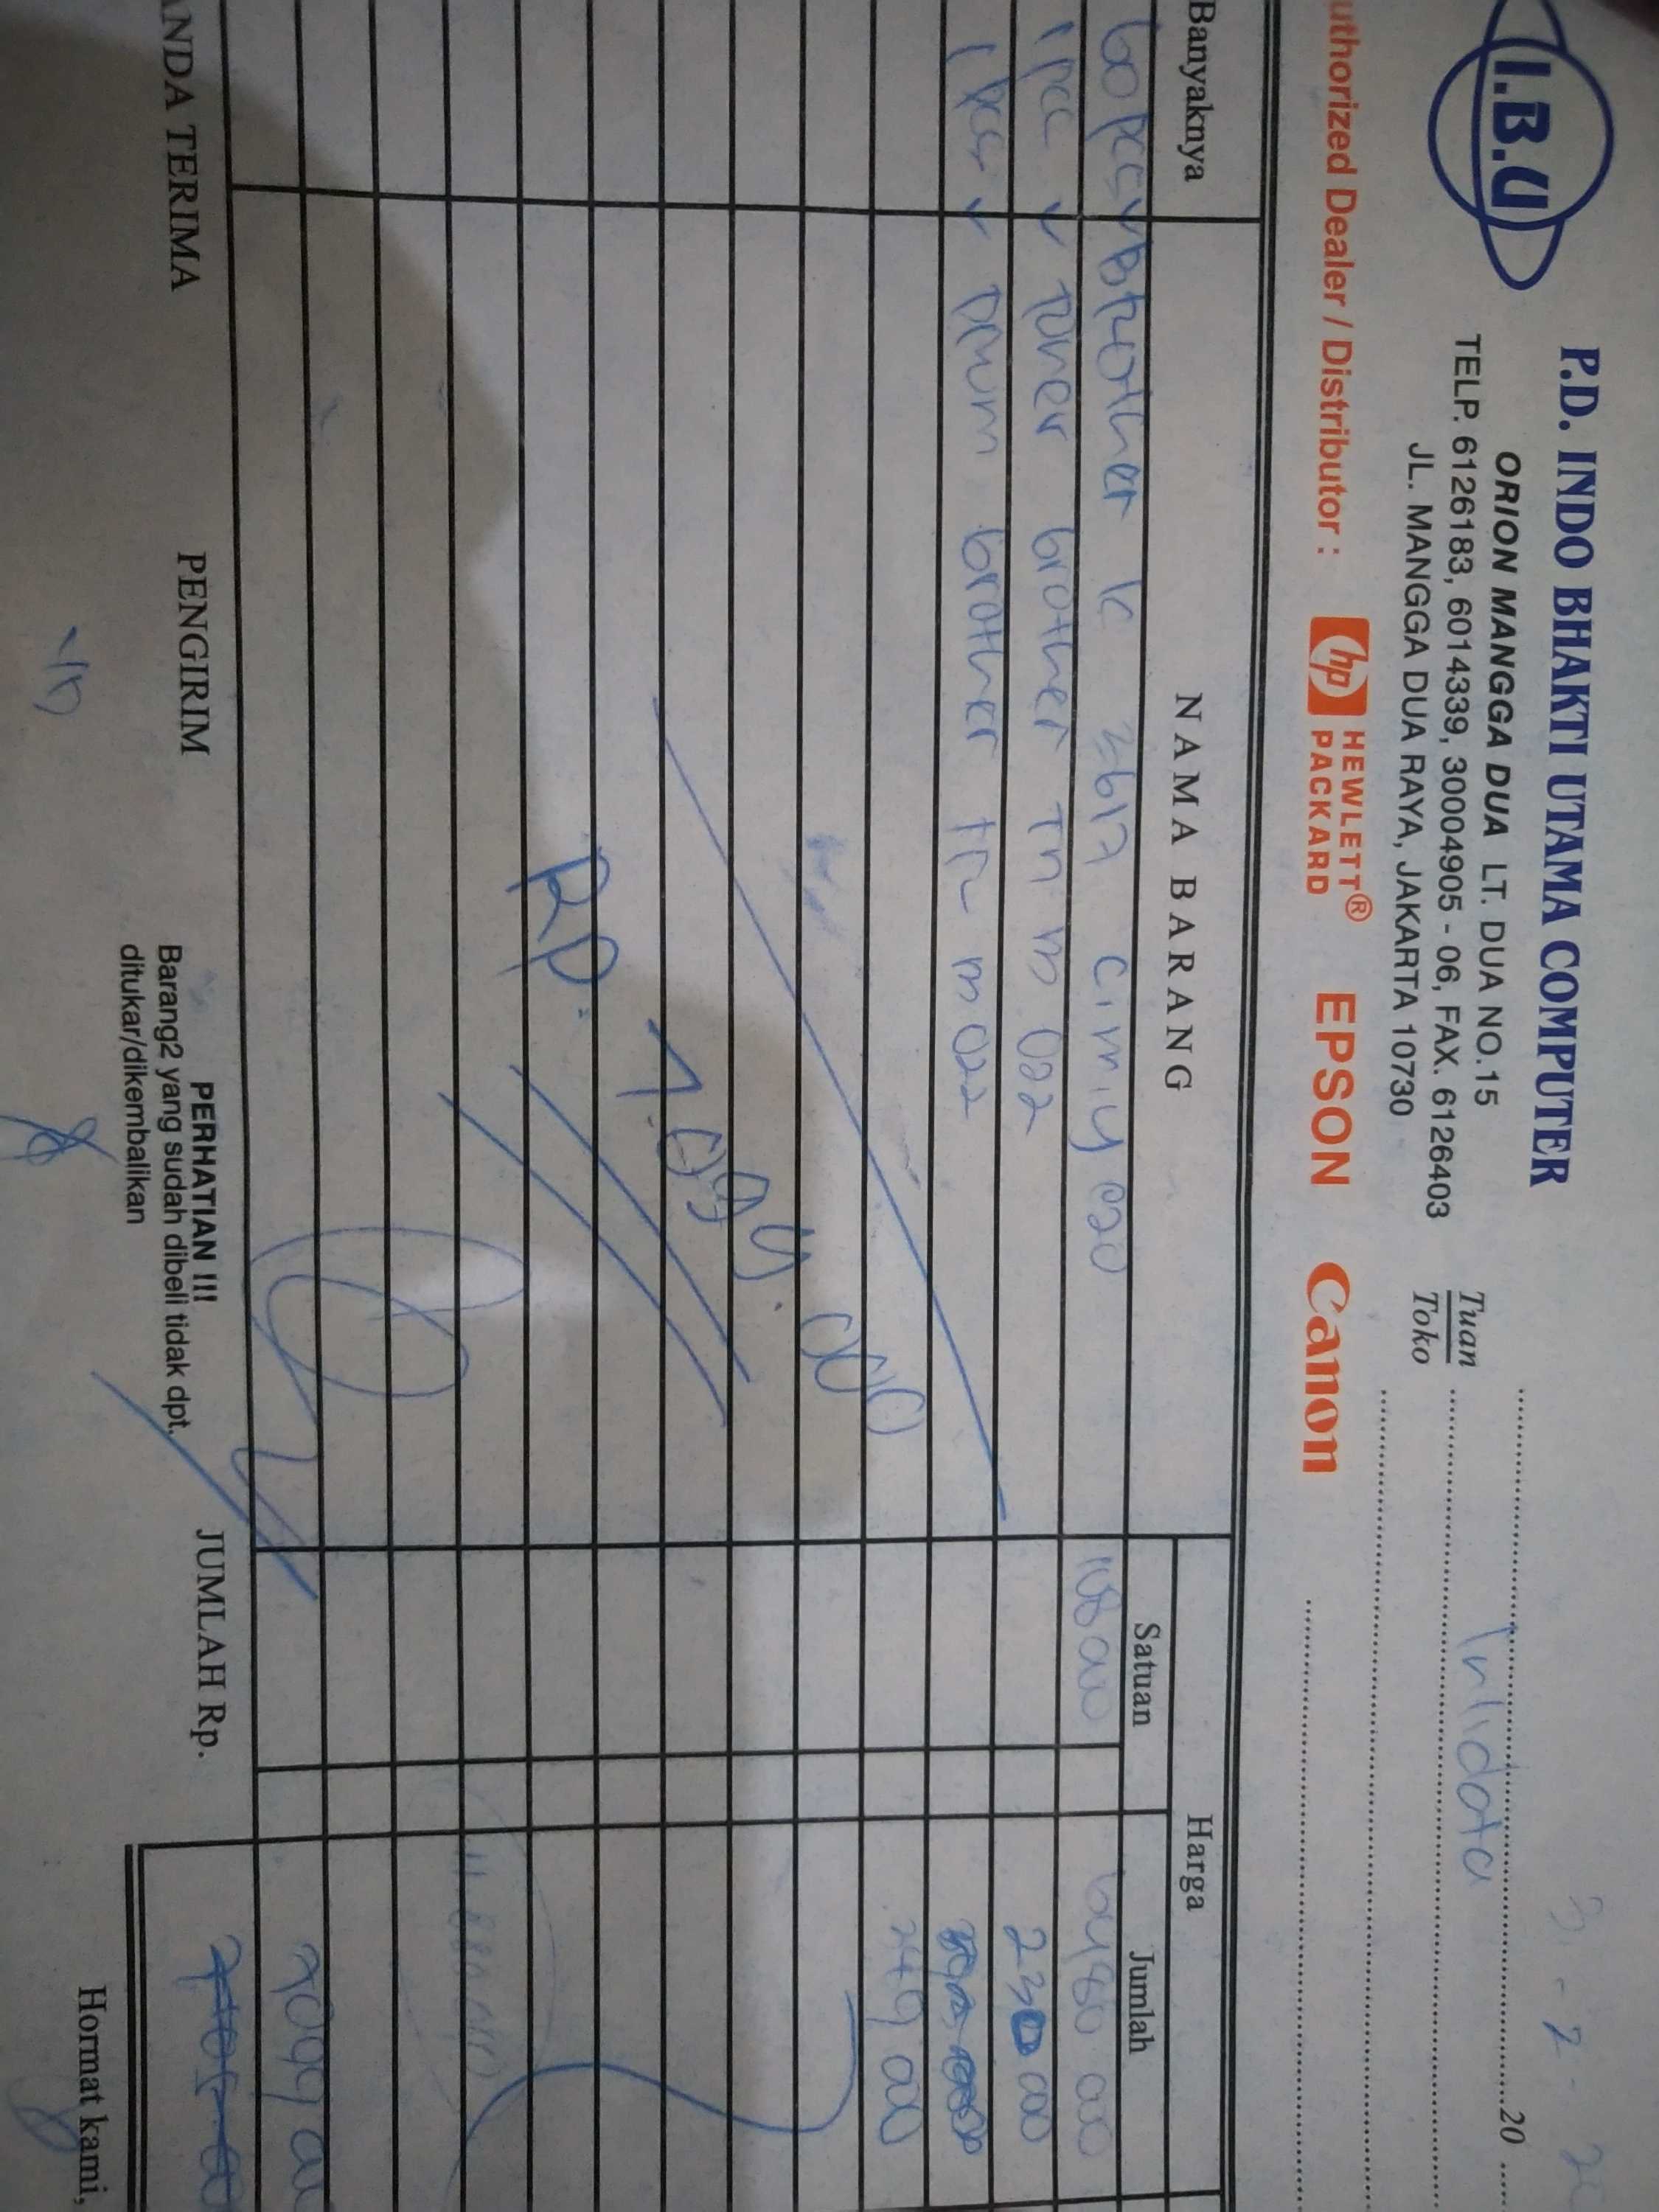 I.B.U
P.D. INDO BHAKTI UTAMA COMPUTER
ORION MANGGA DUA LT. DUA NO.15
TELP. 6126183, 6014339, 30004905 - 06, FAX. 6126403
JL. MANGGA DUA RAYA, JAKARTA 10730
20
Tuan
Toko
uthorized Dealer / Distributor :
hp HEWLETT® PACKARD EPSON Canon
Banyaknya NAMA BARANG Harga
Satuan Jumlah
60 pcs Brother lc 3617 108 000 6480 000
1 pcc toner brother tn 022 230 000
1 pcs Drum brother 022
249 000
Rp. 7.099.000
ANDA TERIMA PENGIRIM
PERHATIAN !!!
Barang2 yang sudah dibeli tidak dpt.
ditukar/dikembalikan
JUMLAH Rp.
Hormat kami,